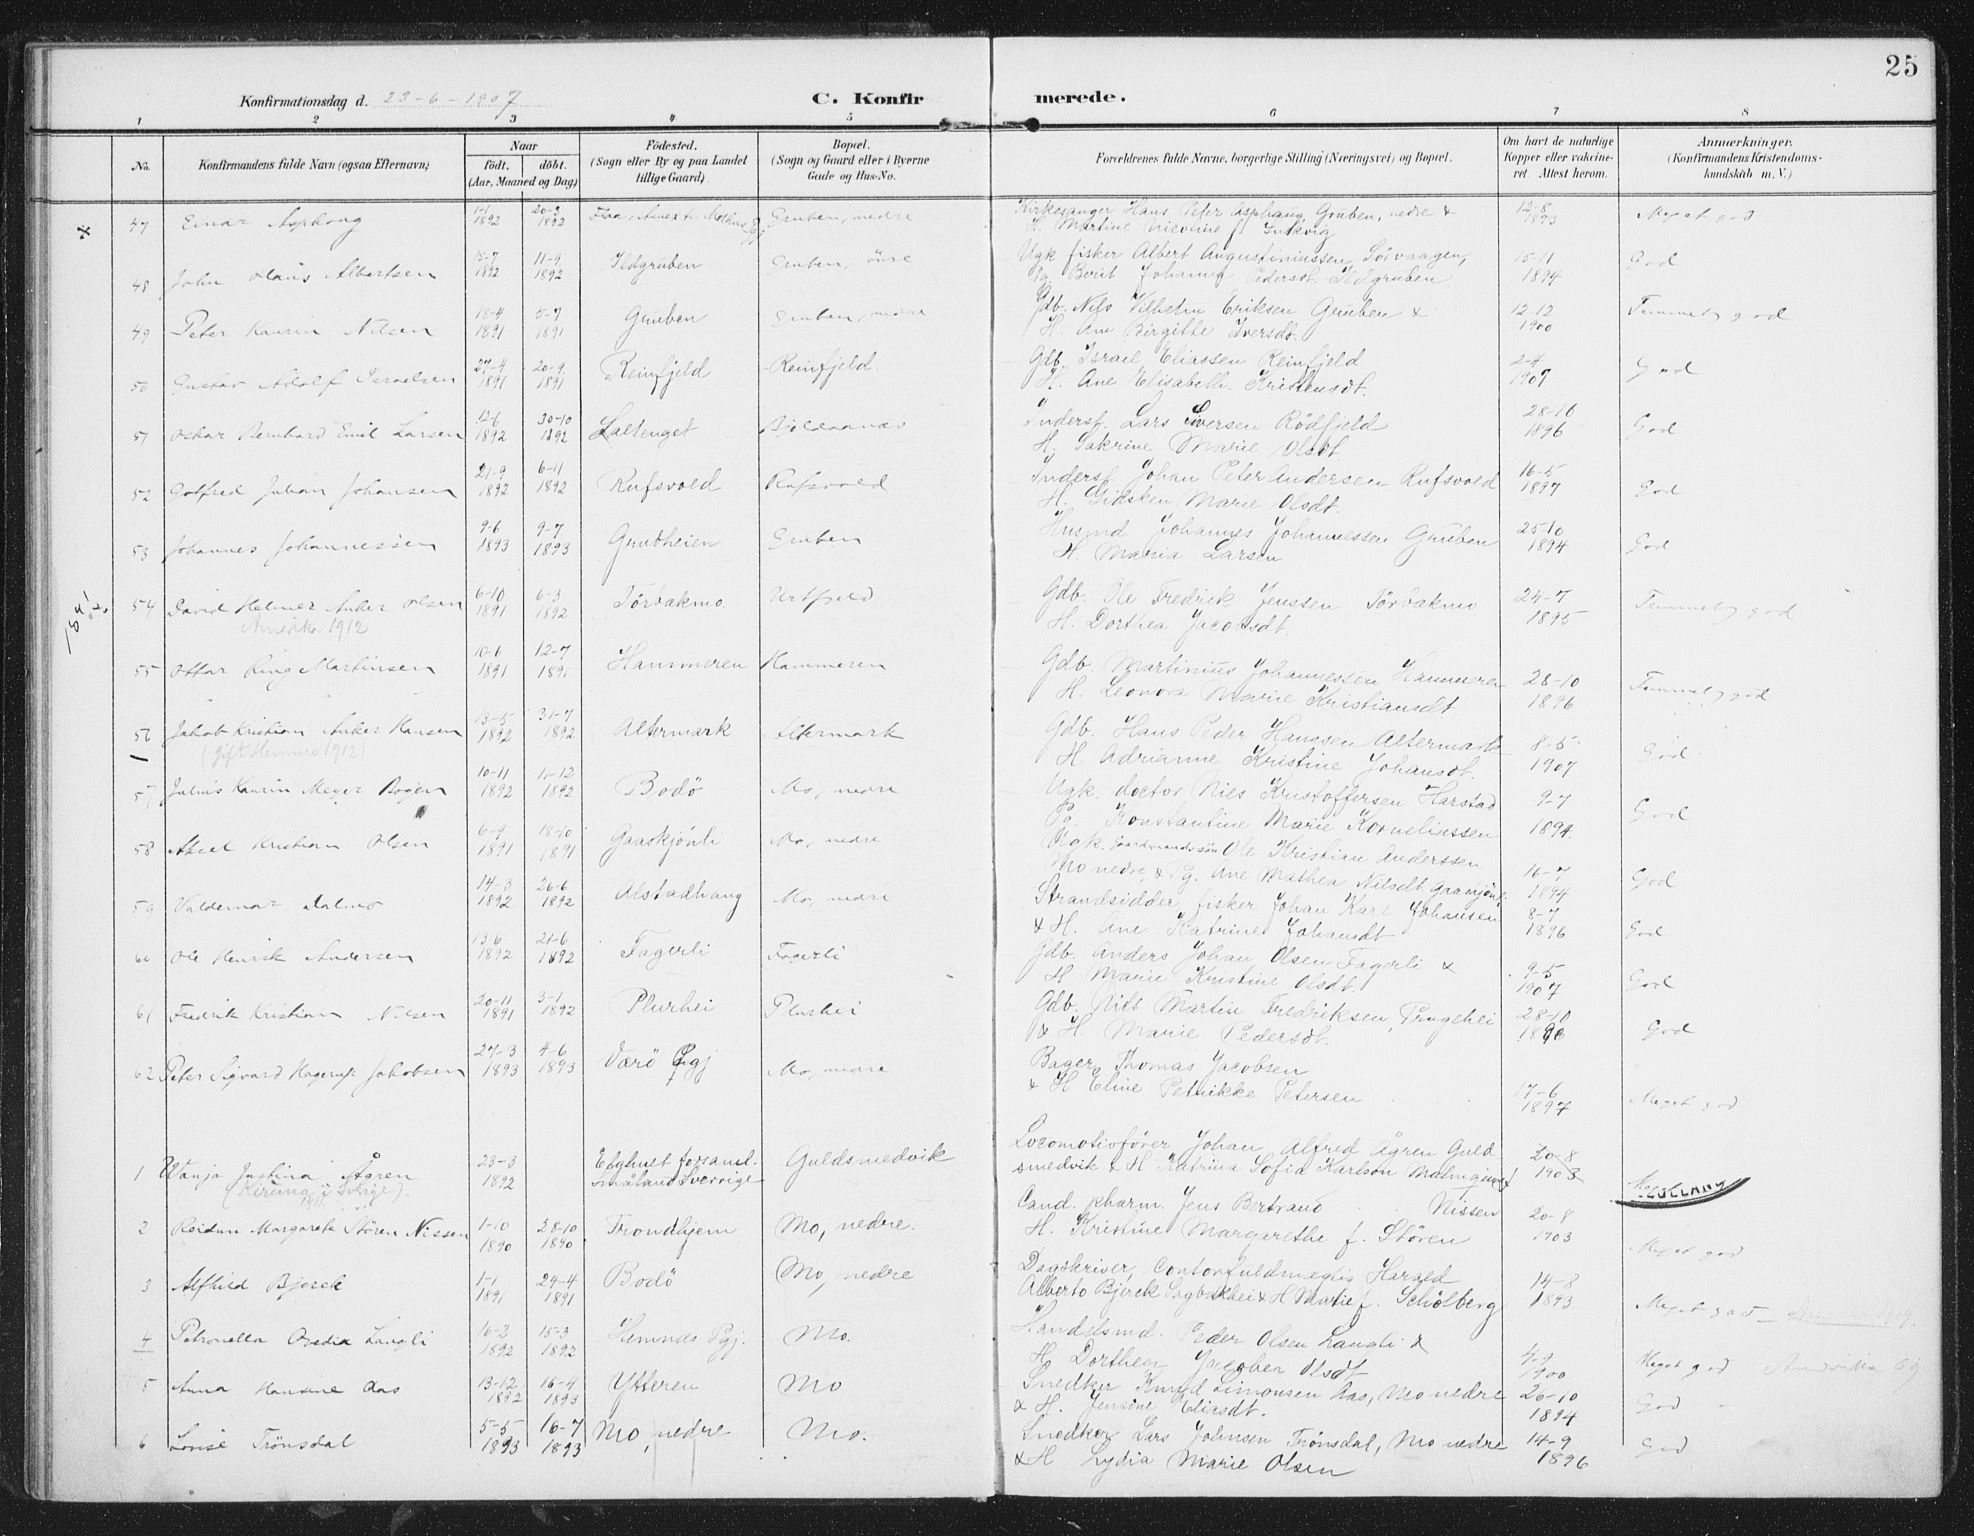 25
Konfirmationsdag d. 23-6-1907
C. Konfirmerede.
1 2 3 4 5 6 7 8
No. Konfirmandens fulde Navn (ogsaa Efternavn) Naar født. døbt. (Aar, Maaned og Dag) Födested. (Sogn eller By og paa Landet tillige Gaard). Bopæl. (Sogn og Gaard eller i Byerne Gade og Hus-No. Forældrenes fulde Navne, borgerlige Stilling (Næringsvei) og Bopæl. Om havt de naturlige Kopper eller vakcineret. Attest herom. Anmærkninger. (Konfirmandens Kristendomskundskab m. V.)
47 Einar Asphaug 1-1 1892 20-3 1892 Gruben, nedre Kirkesanger Hans Peter Asphaug, Gruben, nedre & 12-8 1893 Meget god
H. Martine Nicoline f.
48 John Olaus Albertsen 15-7 1892 11-9 1892 Ildgruben Gruben, övre Ugk fisker Albert Augustinussen, Sörvaagen, 15-11 1894 God
Pg Berit Johanna Pedersdt. Ildgruben.
49 Peter Kaurin Nilsen 18-4 1891 5-7 1891 Gruben Gruben, nedre Gdb. Nils Vilhelm Eriksen Gruben & 12-12 1900 Temmelig god
H. Ane Birgitte Iversdt.
50 Gustav Adolf Israelsen 27-4 1891 20-9 1891 Reinfjeld Reinfjeld. Gdb. Israel Eliassen Reinfjeld 2-4 1907 God
H. Ane Elisabeth Kristensdt.
51 Oskar Bernhard Emil Larsen 12-6 1892 30-10 1892 Bjeldaanæs Inderst. Lars Iversen Rödfjeld 28-10 1896 God
H. Sakrine Marie Olsdt.
52 Gotfred Julian Johansen 21-9 1892 6-11 1892 Rufsvold Rufsvold Inderst. Johan Peter Andersen Rufsvold 16-5 1897 God
H. Gidsken Marie Olsdt.
53 Johannes Johannessen 9-6 1893 9-7 1893 Grubheien Gruben Husmd Johannes Johannessen Gruben 25-10 1894 God
H. Maria Larsen
54 David Helmer Anker Olsen 6-10 1891 6-3 1892 Törbakmo. Urtfjeld Gdb. Ole Fredrik Jenssen Törbakmo 24-7 1895 Temmelig god
Amerika 1912 H. Dorthea Jacobsdt.
55 Ottar Ring Martinsen 10-6 1891 12-7 1891 Hammeren Hammeren Gdb. Martinius Johannessen Hammeren 28-10 1896 Temmelig god
H. Leonora Marie Kristiansdt.
56 Jakob Kristian Anker Hansen 13-5 1892 31-7 1892 Altermark Altermark Gdb. Hans Peder Hanssen Altermark 8-5 1907 God
(gift Hemnes 1912) H. Adrianne Kristine Johansdt.
57 Julius Kaurin Meyer Bogen 10-11 1892 11-12 1892 Bodö Mo, nedre Ugk. doctor Nies Kristoffersen Harstad 9-7 1894. God
Pg. Konstantine Marie Korneliussen
58 Aksel Kristian Olsen 6-9 1891 18-10 1891 Gaaskjönli Mo, nedre Ugk. Gaardmandssön Ole Kristian Anderssen 16-7 1894 God
Mo nedre, & Pg. Ane Mathea Nilsdt
59 Valdemar Dalmo 14-3 1892 26-6 1892 Alstadhaug Mo, nedre Strandsidder, fisker Johan Karl Johansen 8-7 1896 God
& H. Ane Katrine Johansdt
60 Ole Henrik Andersen 13-6 1892 21-6 1892 Fagerli Fagerli Gdb. Anders Johan Olsen Fagerli & 9-5 1907 God
H. Marie Kristine Olsdt.
61 Fredrik Kristian Nilsen 20-11 1891 3-1 1892 Plurhei Plurhei Gdb. Nils Martin Fredriksen, 28-10 1896 God
& H. Marie Pedersdt.
62 Peter Sigvard Hagerup Jakobsen 27-3 1893 4-6 1893 Værö Pgj Mo, nedre Bager Thomas Jacobsen 17-6 1897 Meget god
& H Eline Petrikke Petersen
1 Wanja Justina Ågren 23-3 1892 Småland Sverrige Guldsmedvik Locomotivförer Johan Alfred Ågren Guld 20-8 1903
(Kiruna i Sverige). smedvik & H Katrina Sofia Karlson
2 Reidun Margarete Stören Nissen 1-10 1890 28-10 1890 Trondhjem Mo, nedre. Cand. pharm. Jens Bertrand Nissen 20-8 1903 Meget god
H. Kristine Margarethe f. Stören
3 Alfhild Bjerck 1-1 1891 24-4 1891 Bodö Mo, nedre Dagskriver, Contorfuldmægtig Harald 14-8 1893 Meget god
Alberto Bjerck & H Marie f. Schölberg
4 Petronella Langli 16-2 1892 15-3 1892 Hemnes Pgj. Mo. Handelsmd. Peder Olsen Langli & 4-9 1900 Meget god
H. Dorthea Olsdt
5 Anna Hansine Aas 13-12 1892 16-4 1893 Ytteren Mo Snedker Knud Simonsen Aas, Mo nedre 20-10 1894 God
& H. Jensine Eliasdt.
6 Lovise Trönsdal 5-5 1893 16-7 1893 Mo, nedre Mo. Snedker Lars Johnsen Trönsdal, Mo nedre 14-9 1896 God
& H Lydia Marie Olsen